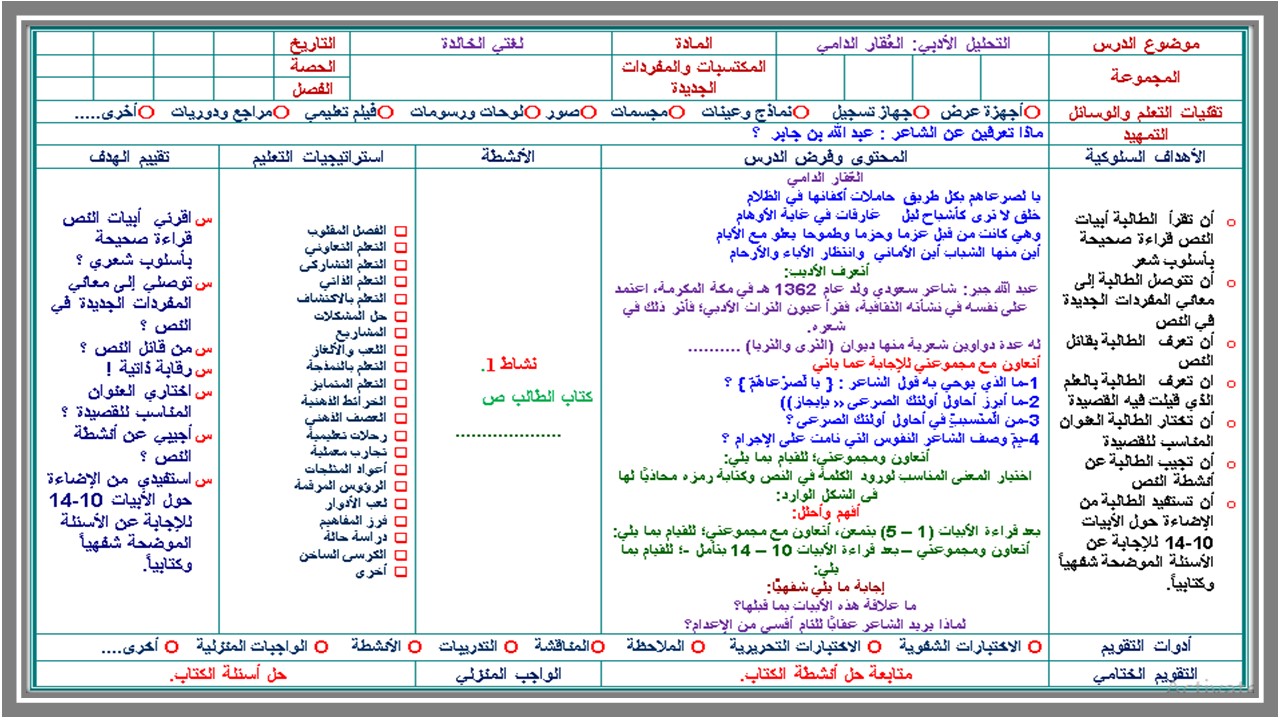 موضوع الدرس
التحليل الأدبي: العُقار الدامي
المادة
لغتي الخالدة
التاريخ
المجموعة
المكتسبات والمفردات الجديدة
الحصة
الفصل
تقنيات التعلم والوسائل
أجهزة عرض
جهاز تسجيل
نماذج وعينات
مجسمات
صور
لوحات ورسومات
فيلم تعليمي
مراجع ودوريات
أخرى.....
التمهيد
ماذا تعرفين عن الشاعر : عبد الله بن جابر ؟
الأهداف السلوكية
المحتوى وفرض الدرس
الأنشطة
استراتيجيات التعليم
تقييم الهدف
أن تقرأ الطالبة أبيات
النص قراءة صحيحة
بأسلوب شعر
أن تتوصل الطالبة إلى
معاني المفردات الجديدة
في النص
أن تعرف الطالبة بقائل
النص
أن تعرف الطالبة بالعلم
الذي قيلت فيه القصيدة
أن تختار الطالبة العنوان
المناسب للقصيدة
أن تجيب الطالبة عن
أنشطة النص
أن تستفيد الطالبة من
الإضاءة حول الأبيات
10-14 للإجابة عن
الأسئلة الموضحة شفهياً
وكتابياً.
العُقار الدامي
يا لصرعاهم بكل طريق حاملات أكفانها في الظلام
خلق لا ترى كأشباح ليل غارقات في غابة الأوهام
وهي كانت من قبل عزما وحزما وطموحا يعلو مع الأيام
أين منها الشباب أين الأماني وانتظار الآباء والأرحام
أتعرف الأديب:
عبد الله جبر: شاعر سعودي ولد عام 1362 هـ في مكة المكرمة، اعتمد
على نفسه في نشأته الثقافية، فقرأ عيون التراث الأدبي؛ فأثر ذلك في
شعره.
له عدة دواوين شعرية منها ديوان (الثرى والثريا) ..........
أتعاون مع مجموعتي للإجابة عما يأتي
1-ما الذي يوحي به قول الشاعر : { يا لَصرْعاهُمْ } ؟
2-ما أبرز أحوال أولئك الصرعى «« بإيجاز))
3-من المُتسببُ في أحوال أولئك الصرعى ؟
4-بِمَ وصف الشاعر النفوس التي نامت على الإجرام ؟
أتعاون ومجموعتي؛ للقيام بما يلي:
اختيار المعنى المناسب لورود الكلمة في النص وكتابة رمزه محاذيًا لها
في الشكل الوارد:
أفهم وأحلل:
بعد قراءة الأبيات (1 – 5) بتمعن، أتعاون مع مجموعتي؛ للقيام بما يلي:
أتعاون ومجموعتي – بعد قراءة الأبيات 10 – 14 بتأمل -؛ للقيام بما
يلي:
إجابة ما يلي شفهيًا:
ما علاقة هذه الأبيات بما قبلها؟
لماذا يريد الشاعر عقابًا للئام أقسى من الإعدام؟
نشاط 1.
كتاب الطالب ص
...................
الفصل المقلوب
التعلم التعاوني
التعلم التشاركي
التعلم الذاتي
التعلم بالاكتشاف
حل المشكلات
المشاريع
اللعب والألغاز
التعلم بالنمذجة
التعلم المتمايز
الخرائط الذهنية
العصف الذهني
رحلات تعليمية
تجارب معملية
أعواد المثلجات
الرؤوس المرقمة
لعب الأدوار
فرز المفاهيم
دراسة حالة
الكرسي الساخن
أخرى
س اقرئي أبيات النص
قراءة صحيحة
بأسلوب شعري ؟
س توصلي إلى معاني
المفردات الجديدة في
النص ؟
س من قائل النص ؟
س رقابة ذاتية !
س اختاري العنوان
المناسب للقصيدة ؟
س أجيبي عن أنشطة
النص ؟
س استفيدي من الإضاءة
حول الأبيات 10-14
للإجابة عن الأسئلة
الموضحة شفهياً
وكتابياً.
أدوات التقويم
الاختبارات الشفوية
الاختبارات التحريرية
الملاحظة
المناقشة
التدريبات
الأنشطة
الواجبات المنزلية
أخرى....
التقويم الختامي
متابعة حل أنشطة الكتاب.
الواجب المنزلي
حل أسئلة الكتاب.